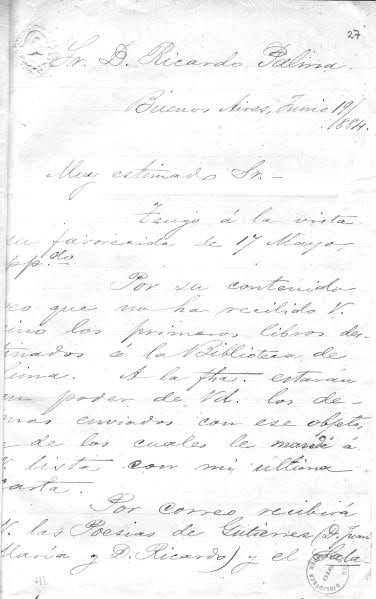 27
Sr. D. Ricardo Palma.
Buenos Aires, Junio 19/
1884.
Muy estimado Sr.-
Tengo á la vista
su favorecida de 17 Mayo,
pp.do
Por su contenido
veo que no ha recibido V.
sino los primeros libros des-
tinados á la Biblioteca de
Lima. A la fha. estarán
en poder de Vd. los de-
mas enviados con ese objeto,
de los cuales le mandé á
V. lista con mi última
carta.
Por correo recibirá
V. las Poesias de Gutierres (D. Juan
María y D. Ricardo) y el